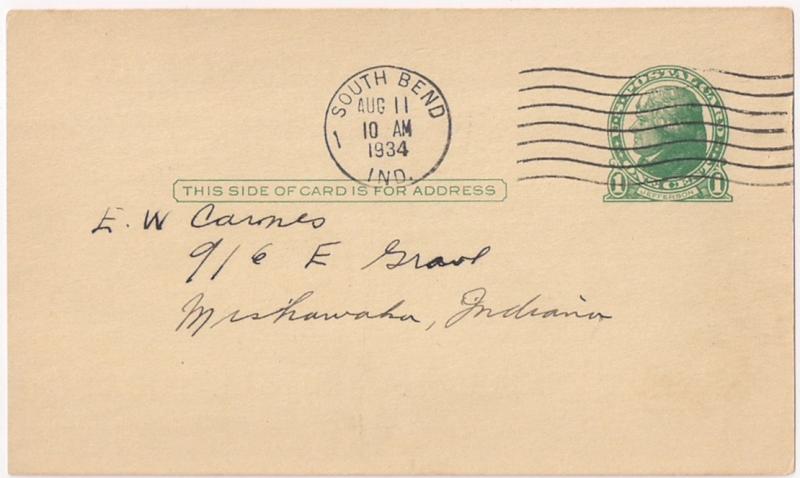 SOUTH BEND
AUG 11
10 AM
1934
IND.
1
U.S. POSTAL CARD
ONE CENT
1 JEFFERSON 1
THIS SIDE OF CARD IS FOR ADDRESS
E. W Carnes
916 E
Mishawaka, Indiana